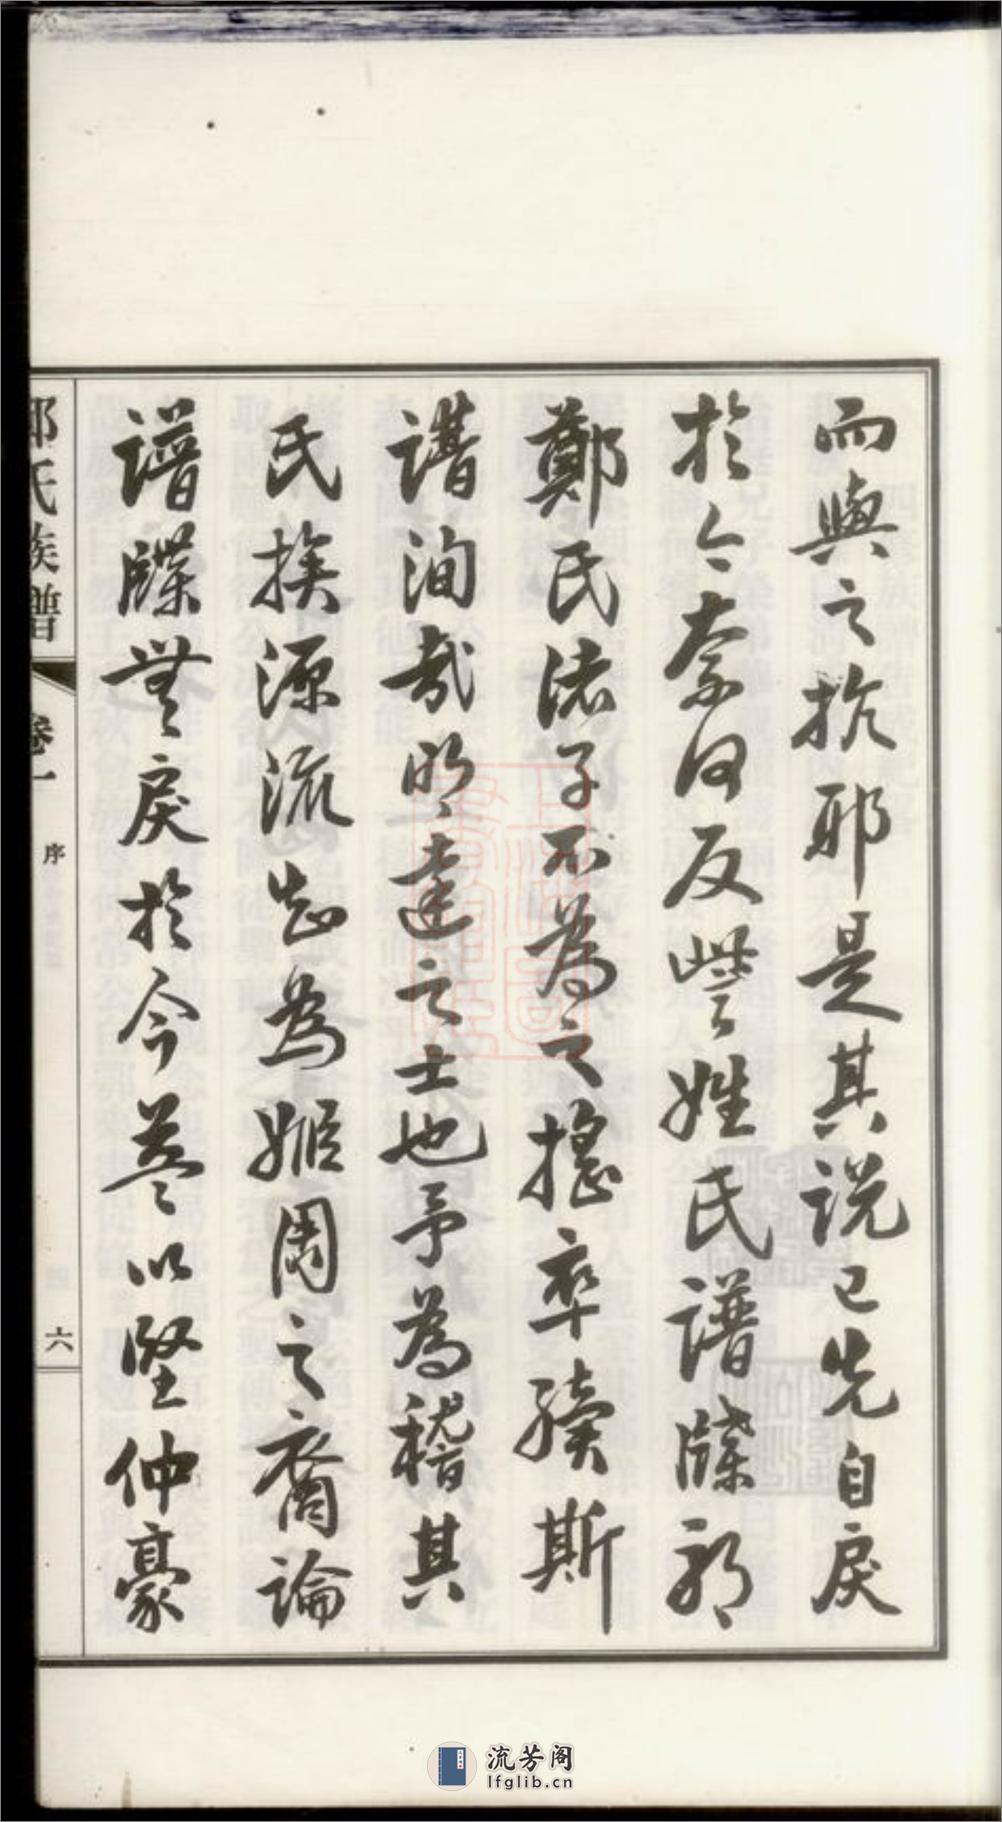 而與之抗耶是其説已先自戾
於今奈何反訾姓氏譜牒
鄭氏诸子不為之搖率續斯
譜洵哉明達之士也予為稽其
氏族源流知為姬周之裔論
譜牒無戾於今蓋以堅仲豪
氏族譜 卷一 序 六
流芳阁
lfglib.cn